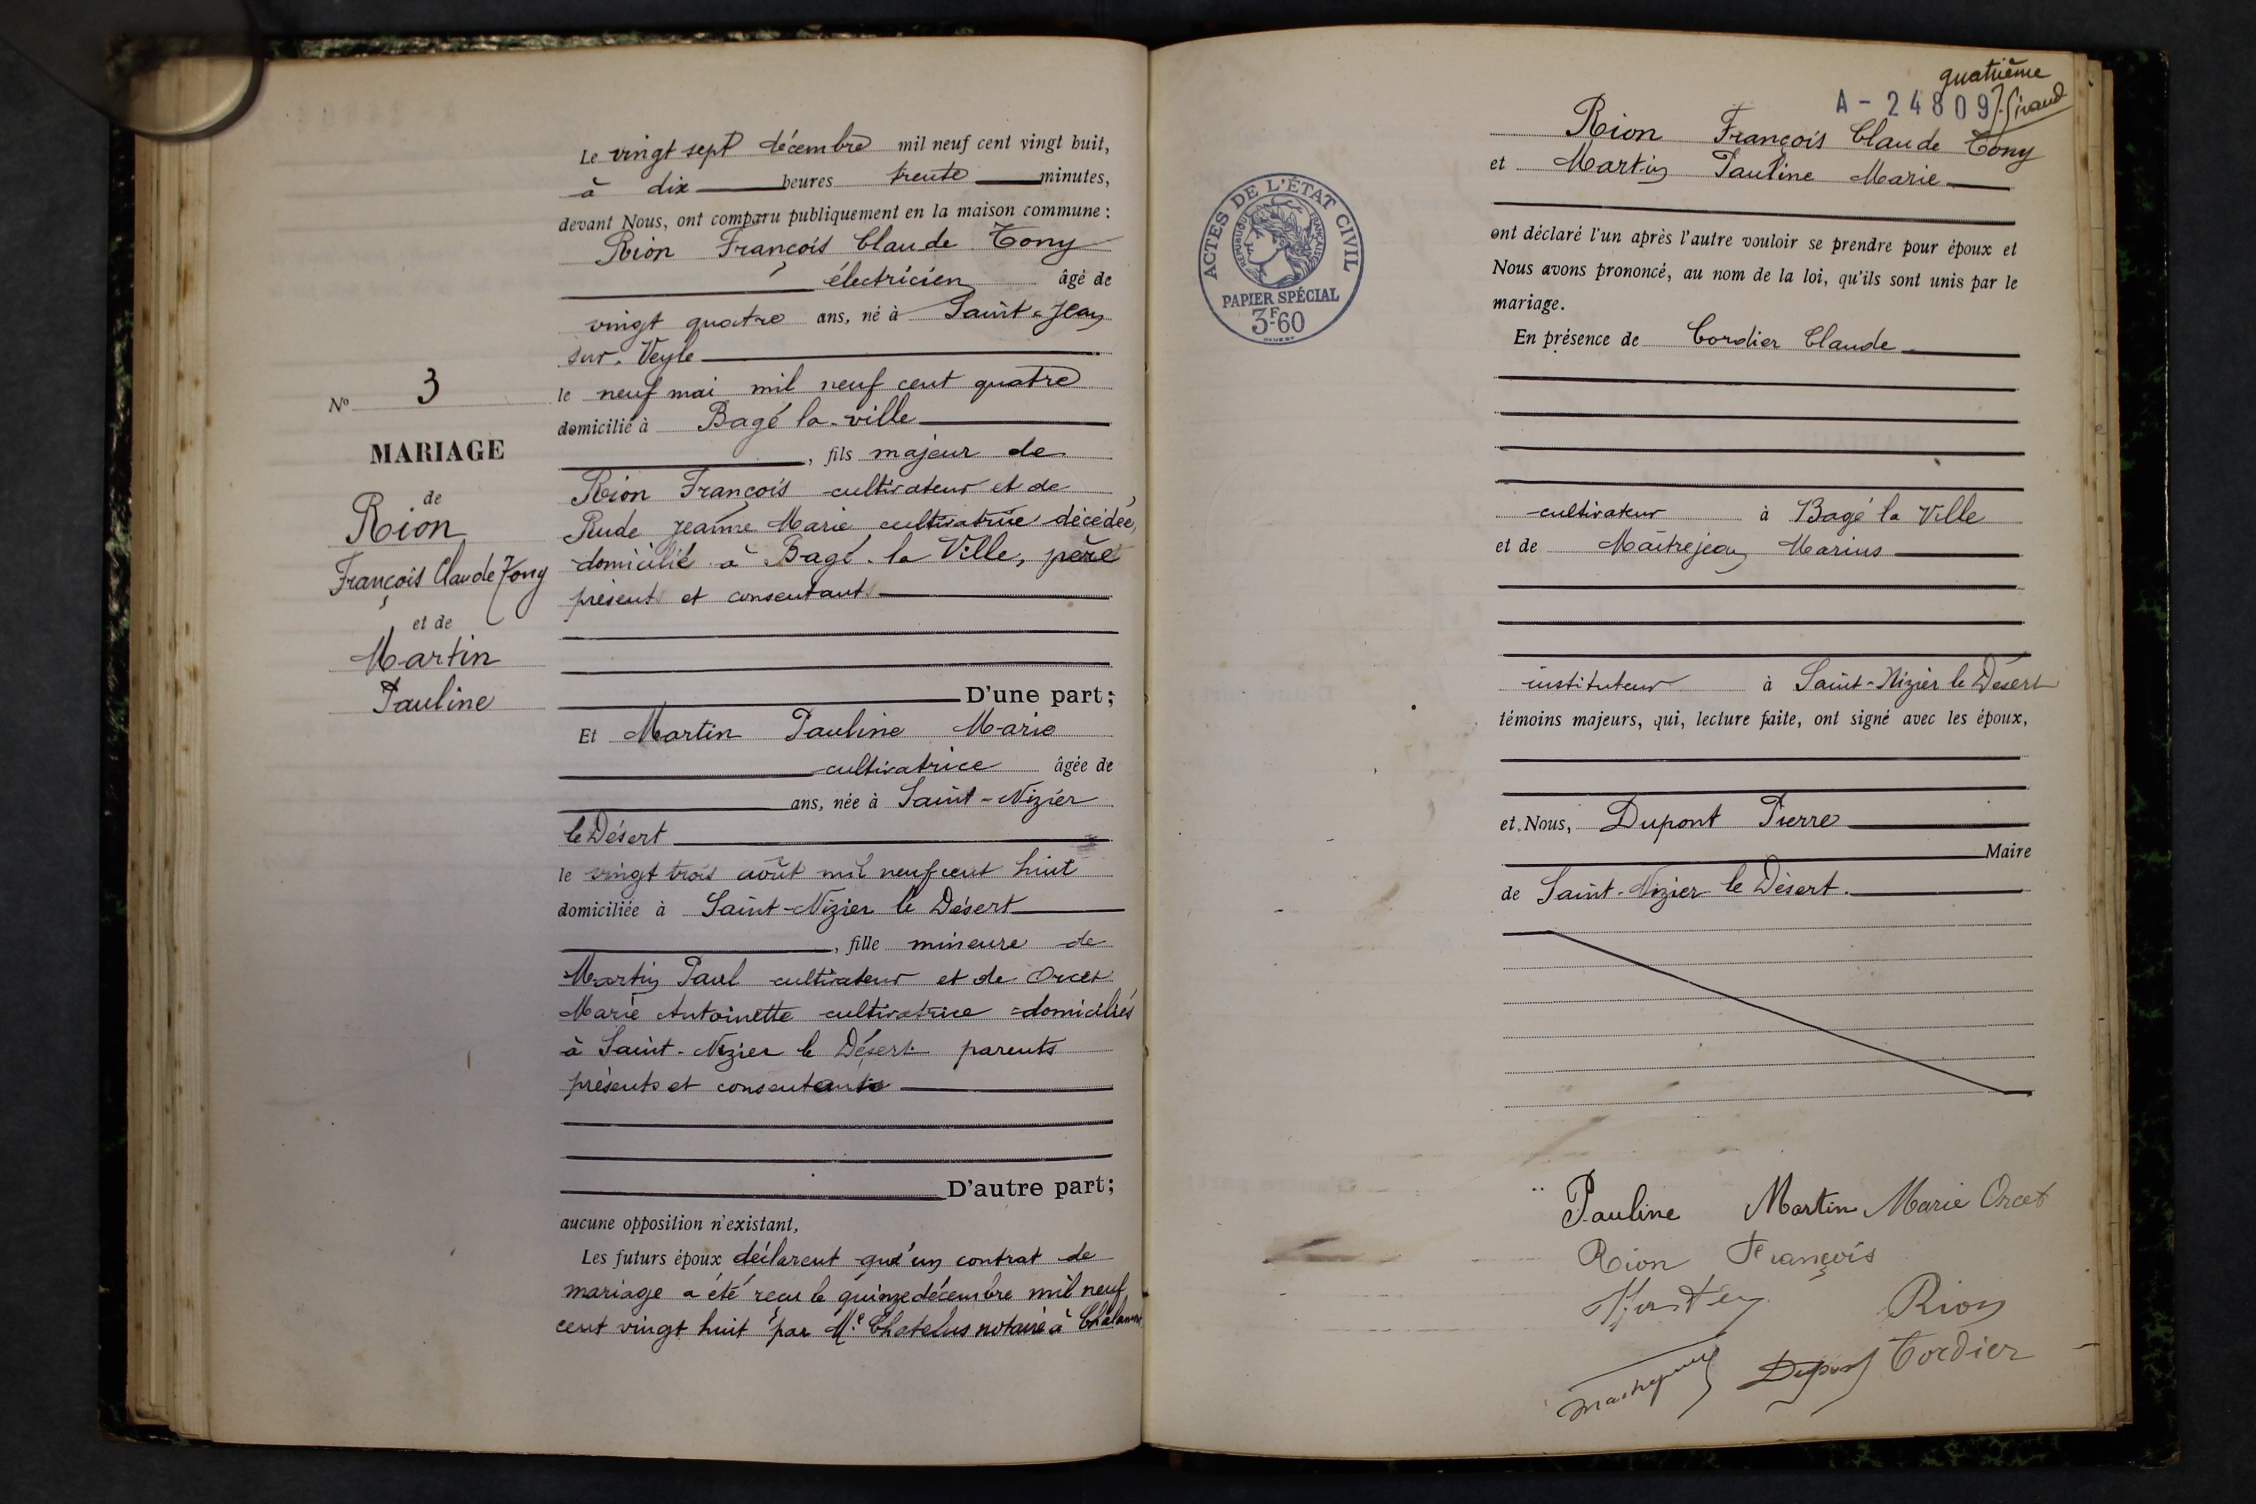 Le vingt sept décembre mil neuf cent vingt huit,
à dix heures trente minutes,
devant Nous, ont comparu publiquement en la maison commune :
Rion François Claude Tony
électricien âgé de
vingt quatre ans, né à Saint-Jean
sur Veyle
le neuf mai mil neuf cent quatre
domicilié à Bagé la-ville
, fils majeur de
Rion François cultivateur et de
Rude Jeanne Marie cultivatrice décédée,
domicilié à Bagé-la Ville, père
présent et consentant
D'une part ;
Et Martin Pauline Marie
cultivatrice âgée de
ans, née à Saint-Nizier
le Désert
le vingt trois août mil neuf cent huit
domiciliée à Saint-Nizier le Désert
, fille mineure de
Martin Paul cultivateur et de Orcet
Marie Antoinette cultivatrice domiciliés
à Saint-Nizier le Désert parents
présents et consentants
D'autre part ;
aucune opposition n'existant,
Les futurs époux déclarent qu'un contrat de
mariage a été reçu le quinze décembre mil neuf
cent vingt huit par Me Chatelus notaire à Chalamont
No 3
MARIAGE
de
Rion
François Claude Tony
et de
Martin
Pauline
quatrième
A - 24809 J. Giraud
Rion François Claude Tony
et Martin Pauline Marie
ont déclaré l'un après l'autre vouloir se prendre pour époux et
Nous avons prononcé, au nom de la loi, qu'ils sont unis par le
mariage.
En présence de Cordier Claude
cultivateur à Bagé la Ville
et de Maîtrejean Marius
instituteur à Saint-Nizier le Désert
témoins majeurs, qui, lecture faite, ont signé avec les époux,
et Nous, Dupont Pierre
Maire
de Saint-Nizier le Désert.
ACTES DE L'ÉTAT CIVIL
RÉPUBLIQUE FRANÇAISE
PAPIER SPÉCIAL
3F60
Pauline Martin Marie Orcet
Rion François
Rion
Dupont Cordier